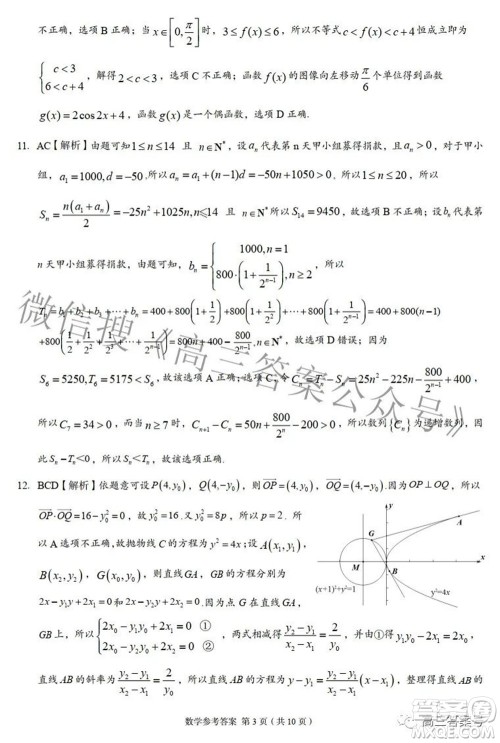 不正确，选项 B 正确；当 x∈[0, π/2] 时，3≤f(x)≤6，所以不等式 c<f(x)<c+4 恒成立即为
{c<3, 6<c+4，解得 2<c<3，选项 C 不正确；函数 f(x) 的图像向左移动 π/6 个单位后得到函数
g(x)=2cos2x+4，函数 g(x) 是一个偶函数，选项 D 正确.
11. AC【解析】由题可知 1≤n≤14 且 n∈N*，设 aₙ 代表第 n 天甲小组募得捐款，且 aₙ>0，对于甲小
组，a₁=1000, d=-50. 所以 aₙ=a₁+(n-1)d=-50n+1050>0. 所以 1≤n≤20，所以
Sₙ=n(a₁+aₙ)/2=-25n²+1025n, n≤14 且 n∈N* 所以 S₁₄=9450，故选项 B 不正确；设 bₙ 代表第
n 天甲小组募得捐款，由题可知，bₙ={1000, n=1; 800·(1+1/2ⁿ⁻¹), n≥2，所以
Tₙ=b₁+b₂+b₃+⋯+bₙ=400+800(1+1/2)+800(1+1/2²)+⋯+800(1+1/2ⁿ⁻¹)=400+800+800(n-1)
+800(1/2+1/2²+1/2³+⋯+1/2ⁿ⁻¹)=800n+400-800/2ⁿ⁻¹，故选项 D 错误；因为
S₆=5250, T₆=5175<S₆，故该选项 A 正确；选项 C，令 Cₙ=Tₙ-Sₙ=25n²-225n-800/2ⁿ⁻¹+400，
所以 C₇=34>0，而当 n≥7 时，Cₙ₊₁-Cₙ=50n+800/2ⁿ-200>0，所以数列{Cₙ}为递增数列，因
此 Sₙ-Tₙ<0，所以该选项正确.
12. BCD【解析】依题意可设 P(4,y₀)，Q(4,-y₀)，则 OP=(4,y₀)，OQ=(4,-y₀). 因为 OP⊥OQ，所以
OP·OQ=16-y₀²=0，故 y₀²=16. 又 y₀²=8p，所以 p=2. 所
以 A 选项不正确，故抛物线 C 的方程为 y²=4x；设 A(x₁,y₁)，
B(x₂,y₂)，则直线 GA，GB 的方程分别为
2x-y₁y+2x₁=0 和 2x-y₂y+2x₂=0. 因为点 G 在直线 GA，
GB 上，所以{2x₀-y₁y₀+2x₁=0 ① 2x₀-y₂y₀+2x₂=0 ②，两式相减得 (y₂-y₁)/(x₂-x₁)=2/y₀，并由①得 y₀y₁-2x₁=2x₀，
直线 AB 的斜率为 (y₂-y₁)/(x₂-x₁)=2/y₀，所以直线 AB 的方程为 y-y₁=(y₂-y₁)/(x₂-x₁)(x-x₁)，整理得直线 AB 的方
y
A
G
M
O
B
x
(x+1)²+y²=1
y²=4x
数学参考答案 第 3 页（共 10 页）
微信搜《高三答案公众号》
高三答案号